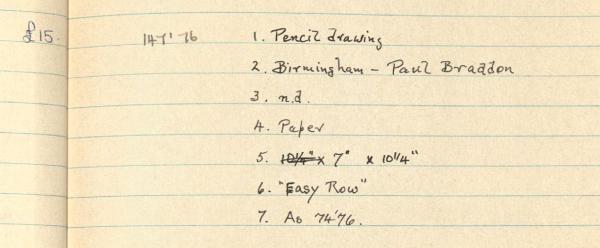 £15. 147'76 1. Pencil drawing
2. Birmingham – Paul Braddon
3. n.d.
4. Paper
5. 10¼" x 7" x 10¼"
6. "Easy Row"
7. As 74'76.